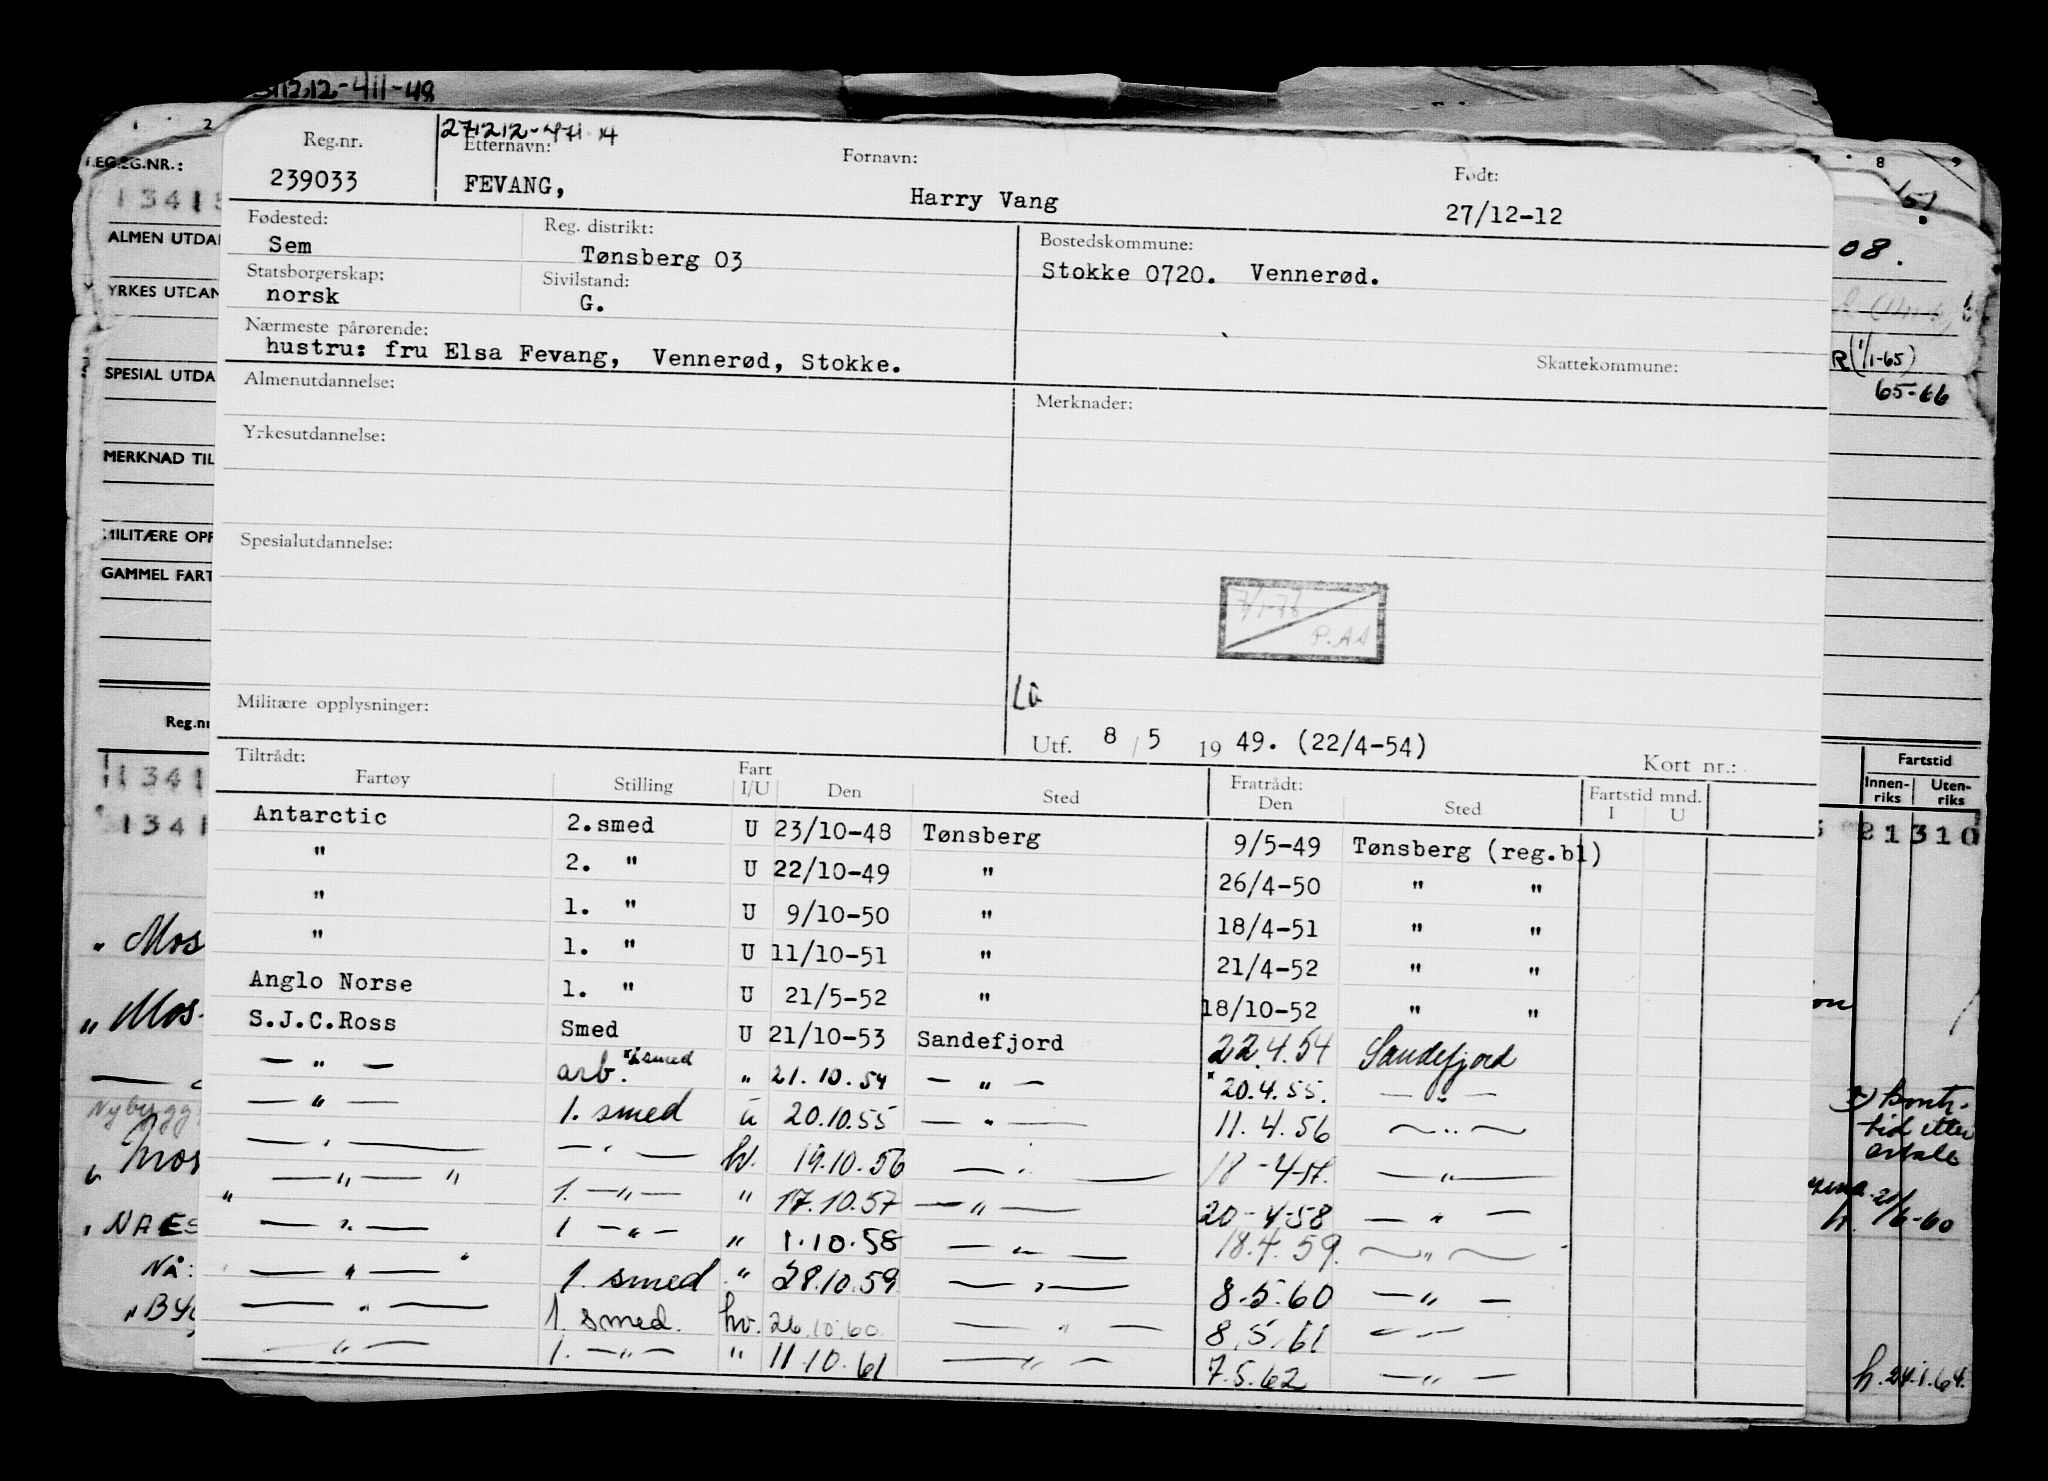 12,12-411-48
271212-471 14
Reg.nr. Etternavn: Fornavn: Født:
239033 FEVANG, Harry Vang 27/12-12
Fødested: Reg. distrikt: Bostedskommune:
Sem Tønsberg 03 Stokke 0720. Vennerød.
Statsborgerskap: Sivilstand:
norsk G.
Nærmeste pårørende:
hustru: fru Elsa Fevang, Vennerød, Stokke.
Skattekommune:
Almenutdannelse: Merknader:
Yrkesutdannelse:
Spesialutdannelse:
7/1-76
P.AA
Militære opplysninger:
Utf. 8/5 1949. (22/4-54)
Kort nr.:
Tiltrådt: Fratrådt:
Fartøy Stilling Fart I/U Den Sted Den Sted Fartstid mnd. I U
Antarctic 2.smed U 23/10-48 Tønsberg 9/5-49 Tønsberg (reg.bl)
" 2. " U 22/10-49 " 26/4-50 " "
" 1. " U 9/10-50 " 18/4-51 " "
" 1. " U 11/10-51 " 21/4-52 " "
Anglo Norse 1. " U 21/5-52 " 18/10-52 " "
S.J.C.Ross Smed U 21/10-53 Sandefjord 22.4.54 Sandefjord
— " — arb. smed " 21.10.54 — " — 20.4.55. — " —
— " — 1. smed u 20.10.55 — " — 11.4.56 — " —
— " — — " — hv. 19.10.56 — " — 18-4-57. — " —
— " — " 1. — " — " 17.10.57 — " — 20-4-58 — " —
— " — 1 — " — " 1.10.58 — " — 18.4.59. — " —
— " — 1. smed " 28.10.59 — " — 8.5.60 — " —
— " — 1. smed. hv. 26.10.60 — " — 8.5.61 — " —
— " — 1. — " — " 11.10.61 — " — 7.5.62 — " —
REG.NR.:
ALMEN UTDA
YRKES UTDAN
SPESIAL UTDA
MERKNAD TIL
MILITÆRE OPP
GAMMEL FART
Reg.nr
1341
1341
" Mos
" Mos
Nybygg
" Mos
" NAES
Nå:
08.
(1/1-65)
65-66
Fartstid
Innen-riks Uten-riks
21310
21/6-60
h. 24.1.64.